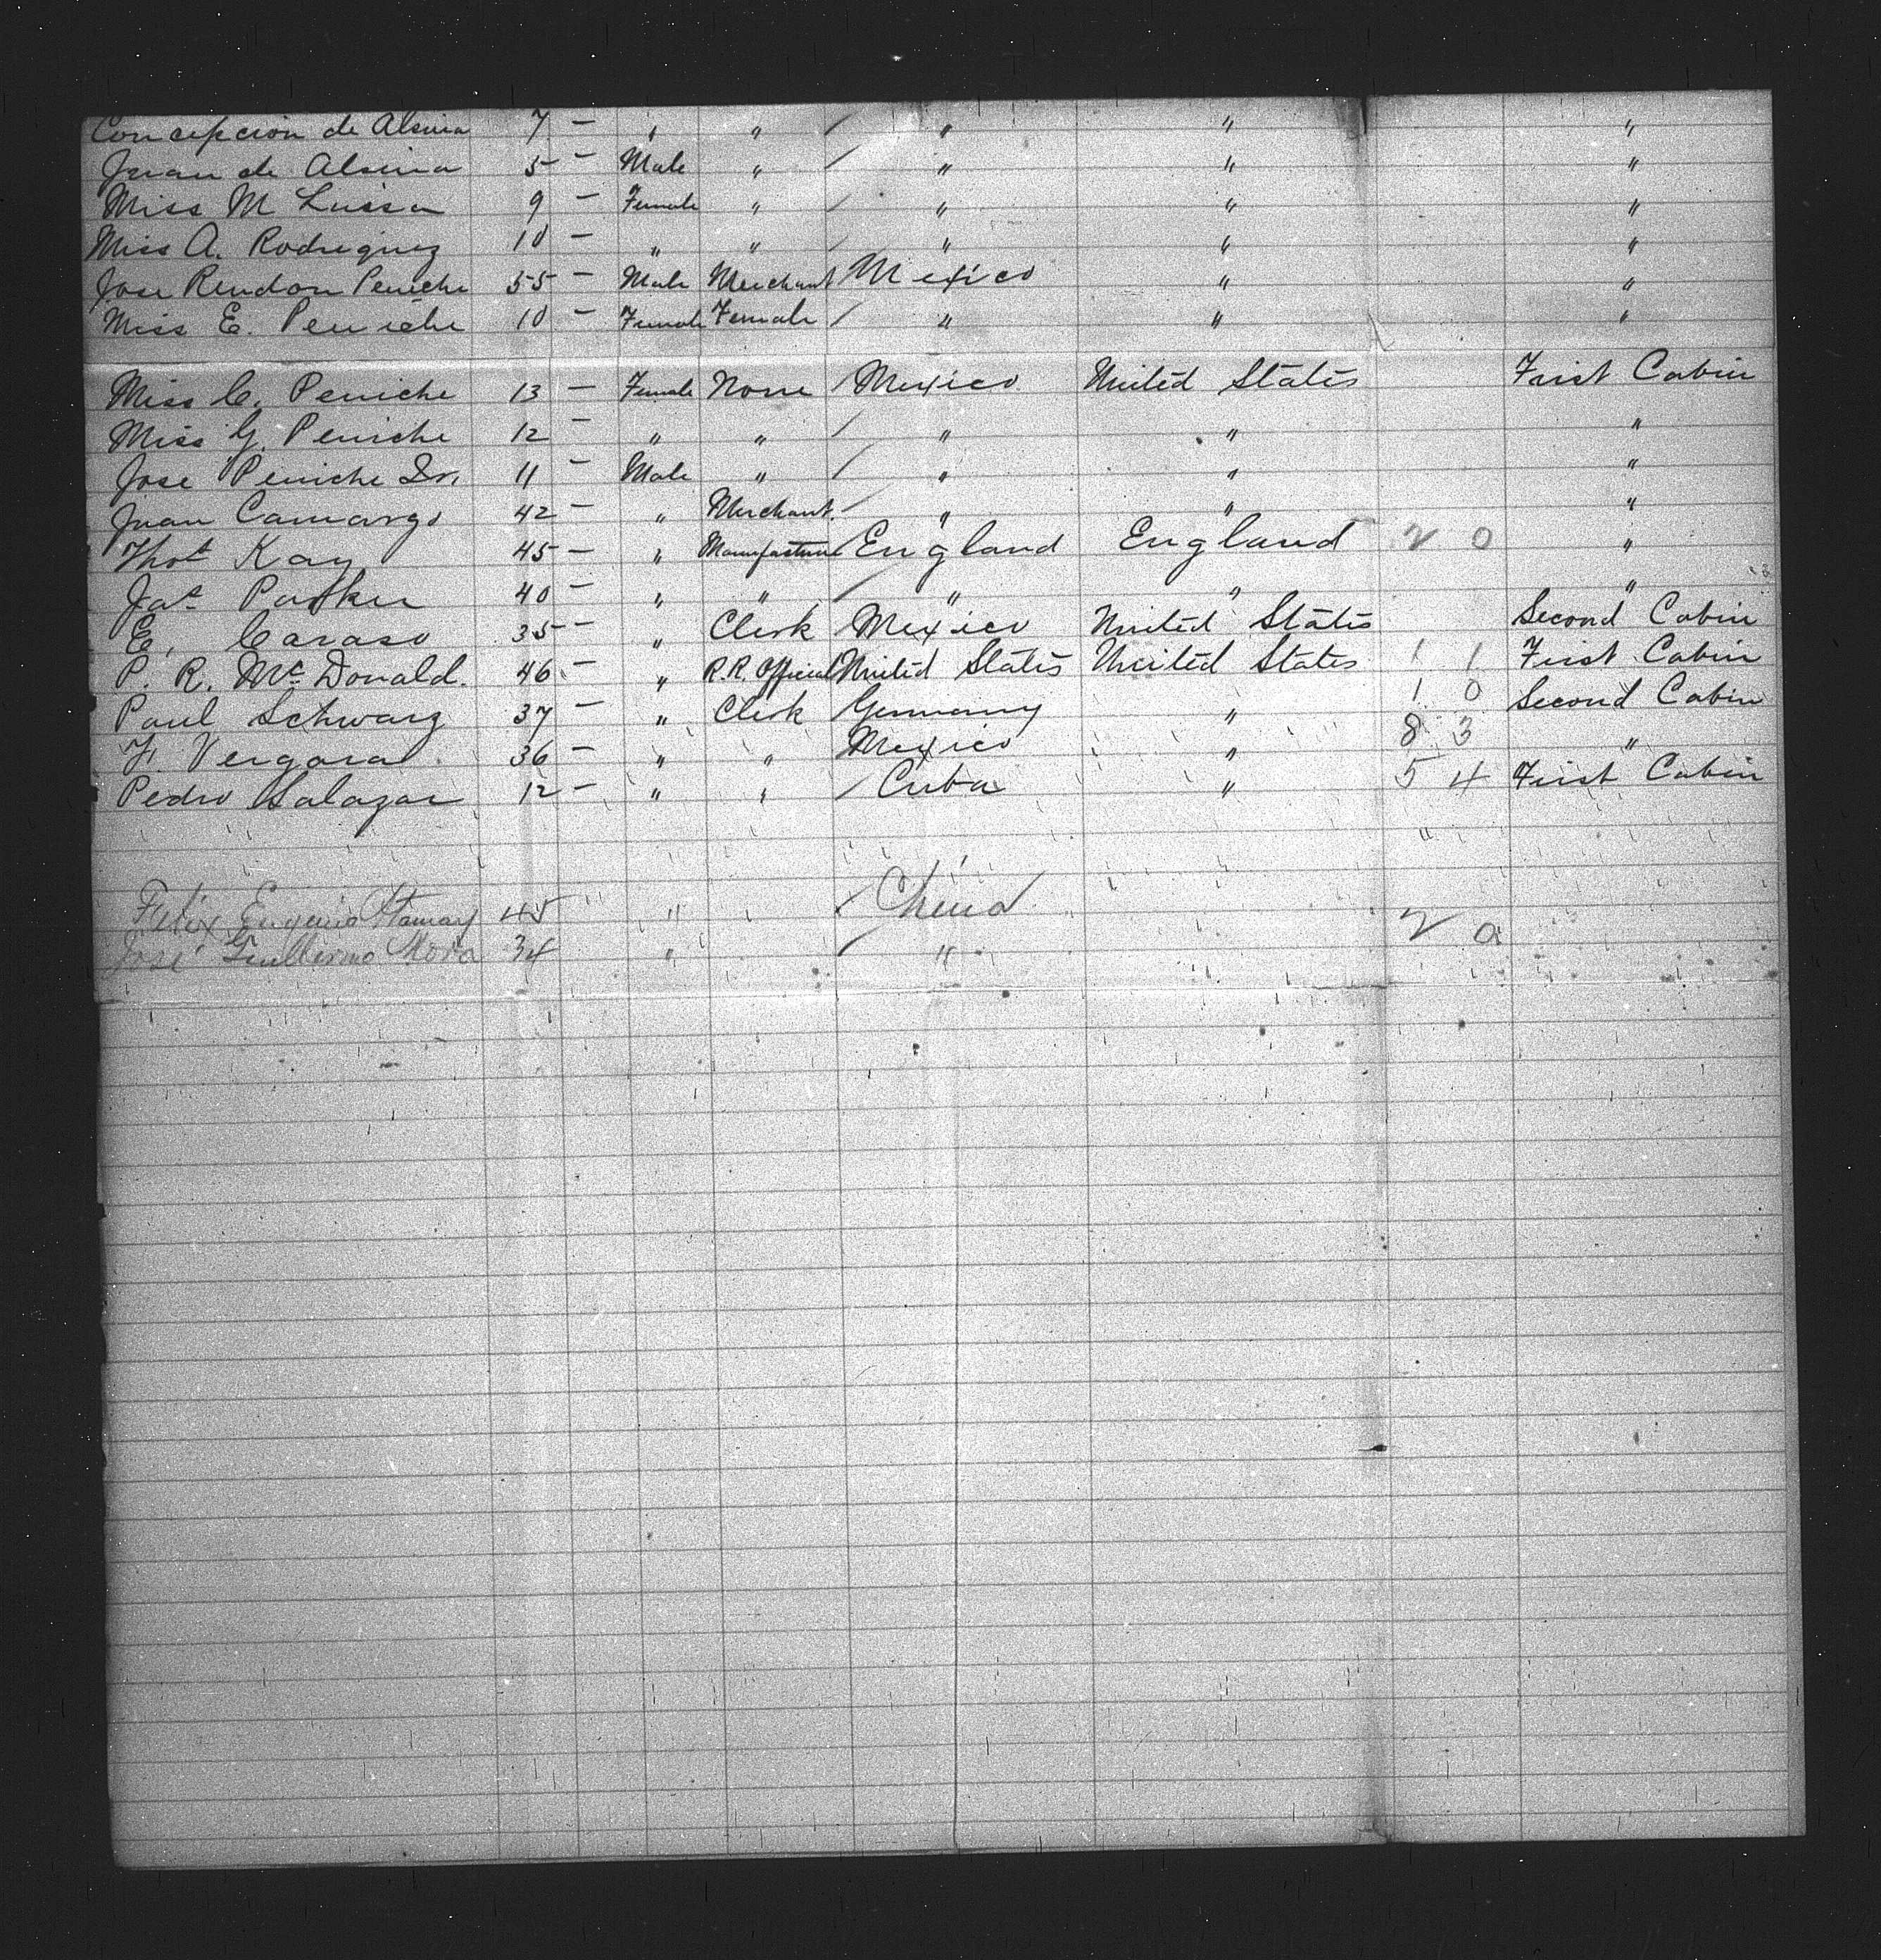 Concepcion de Alsina 7 — " " / " " "
Juan de Alsina 5 — Male " / " " "
Miss M Lissa 9 — Female " / " " "
Miss A. Rodriguez 10 — " " / " " "
Jose Rendon Peniche 55 — Male Merchant Mexico " "
Miss E. Peniche 10 — Female Female / " " "
Miss C. Peniche 13 — Female None / Mexico United States First Cabin
Miss G. Peniche 12 — " " / " " "
Jose Peniche Jr. 11 — Male " / " " "
Juan Camargo 42 — " Merchant. / " " "
Thos Kay 45 — " England England 2 0 "
Jas Parker 40 — " " / " " "
E. Caraso 35 — " Clerk Mexico United States Second Cabin
P. R. Mc Donald. 46 — " R.R. Official United States United States 1 1 First Cabin
Paul Schwarz 37 — " Clerk Germany " 1 0 Second Cabin
F. Vergara 36 — " " Mexico " 8 3 "
Pedro Salazar 12 — " " / Cuba " 5 4 First Cabin
Felix Eugenio 45 " / China
José Guillermo Mora 34 " / " 2 0